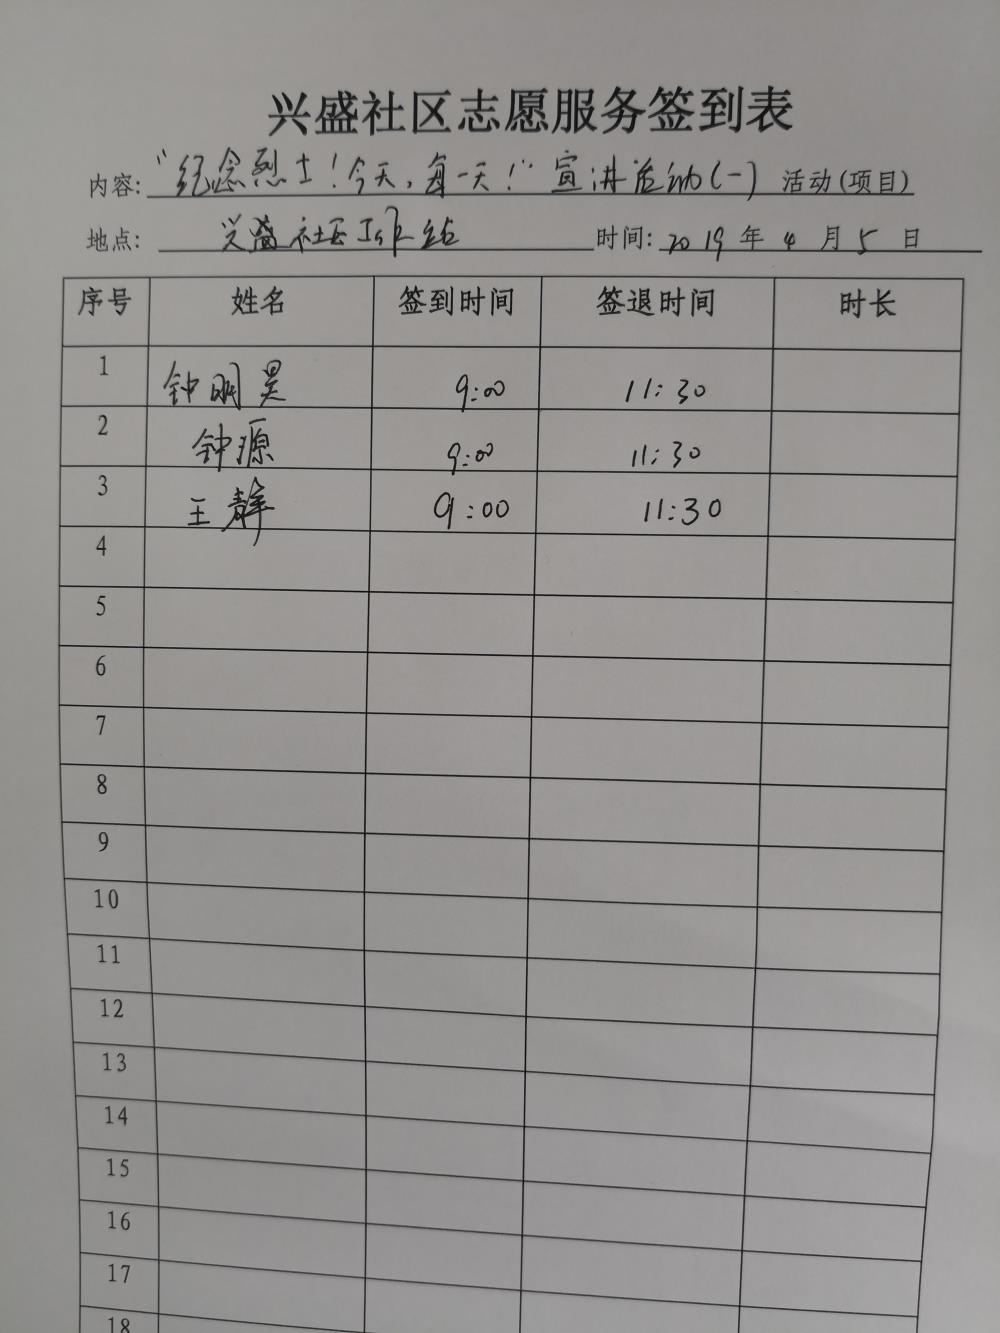 兴盛社区志愿服务签到表
内容: "纪念烈士!今天,每一天!"宣讲活动(一) 活动(项目)
地点: 兴盛社区工作站 时间: 2019 年 4 月 5 日
序号 姓名 签到时间 签退时间 时长
1 钟明昊 9:00 11:30
2 钟源 9:00 11:30
3 王静 9:00 11:30
4
5
6
7
8
9
10
11
12
13
14
15
16
17
18